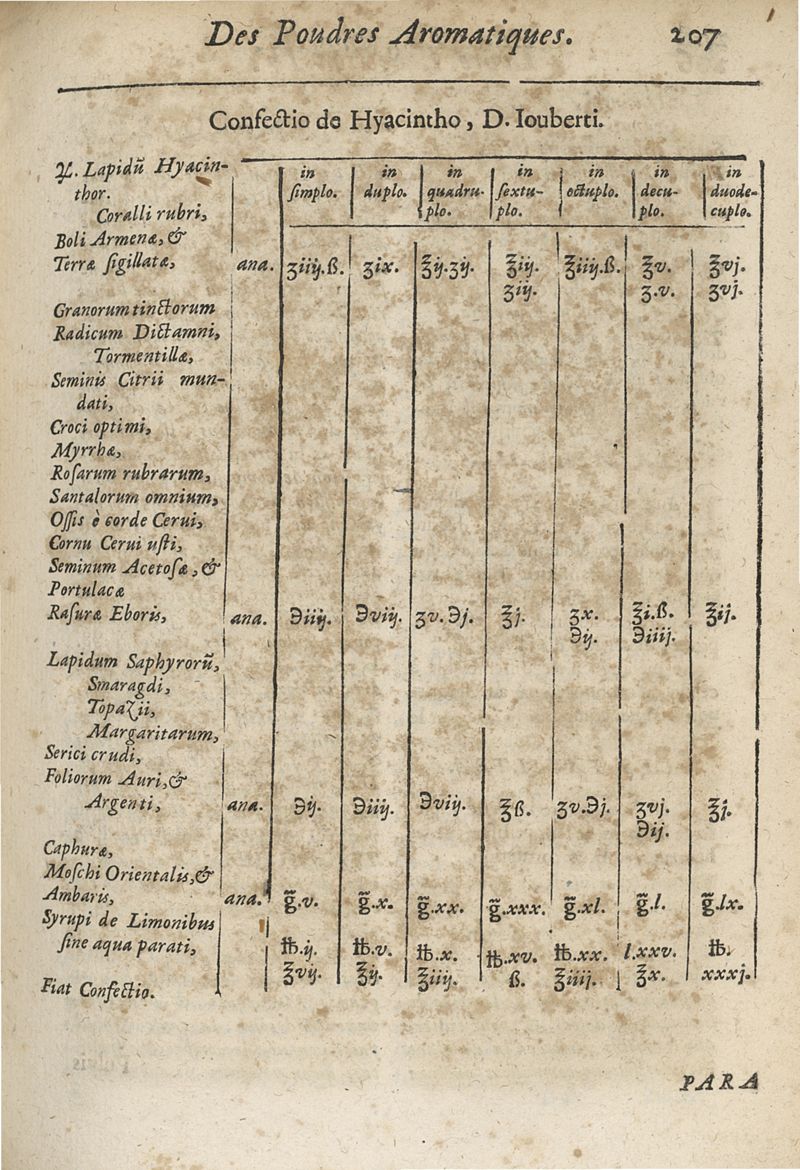 Des Poudres Aromatiques. 207
Confectio de Hyacintho, D. Iouberti.
℞. Lapidū Hyacin- in in in in in in in
thor. ſimplo. duplo. quadru- ſextu- octuplo. decu- duode-
Coralli rubri, plo. plo. plo. cuplo.
Boli Armenæ, &
Terræ ſigillatæ, ana. ʒiiij.ß. ʒix. ℥ij.ʒij. ℥iij. ℥iiij.ß. ℥v. ℥vj.
ʒiij. ʒ.v. ʒvj.
Granorum tinctorum
Radicum Dictamni,
Tormentillæ,
Seminis Citrii mun-
dati,
Croci optimi,
Myrrhæ,
Roſarum rubrarum,
Santalorum omnium,
Oſſis è corde Cerui,
Cornu Cerui uſti,
Seminum Acetoſæ, &
Portulacæ
Raſuræ Eboris, ana. ℈iiij. ℈viij. ʒv.℈j. ℥j. ʒx. ℥i.ß. ℥ij.
℈ij. ℈iiij.
Lapidum Saphyrorū,
Smaragdi,
Topazii,
Margaritarum,
Serici crudi,
Foliorum Auri, &
Argenti, ana. ℈ij. ℈iiij. ℈viij. ℥ß. ʒv.℈j. ʒvj. ℥j.
℈ij.
Caphuræ,
Moſchi Orientalis, &
Ambaris, ana. g̃.v. g̃.x. g̃.xx. g̃.xxx. g̃.xl. g̃.l. g̃.lx.
Syrupi de Limonibus
ſine aqua parati, ℔.ij. ℔.v. ℔.x. ℔.xv. ℔.xx. l.xxv. ℔.
℥vij. ℥ij. ℥iiij. ß. ℥iiij. ℥x. xxxj.
Fiat Confectio.
PARA